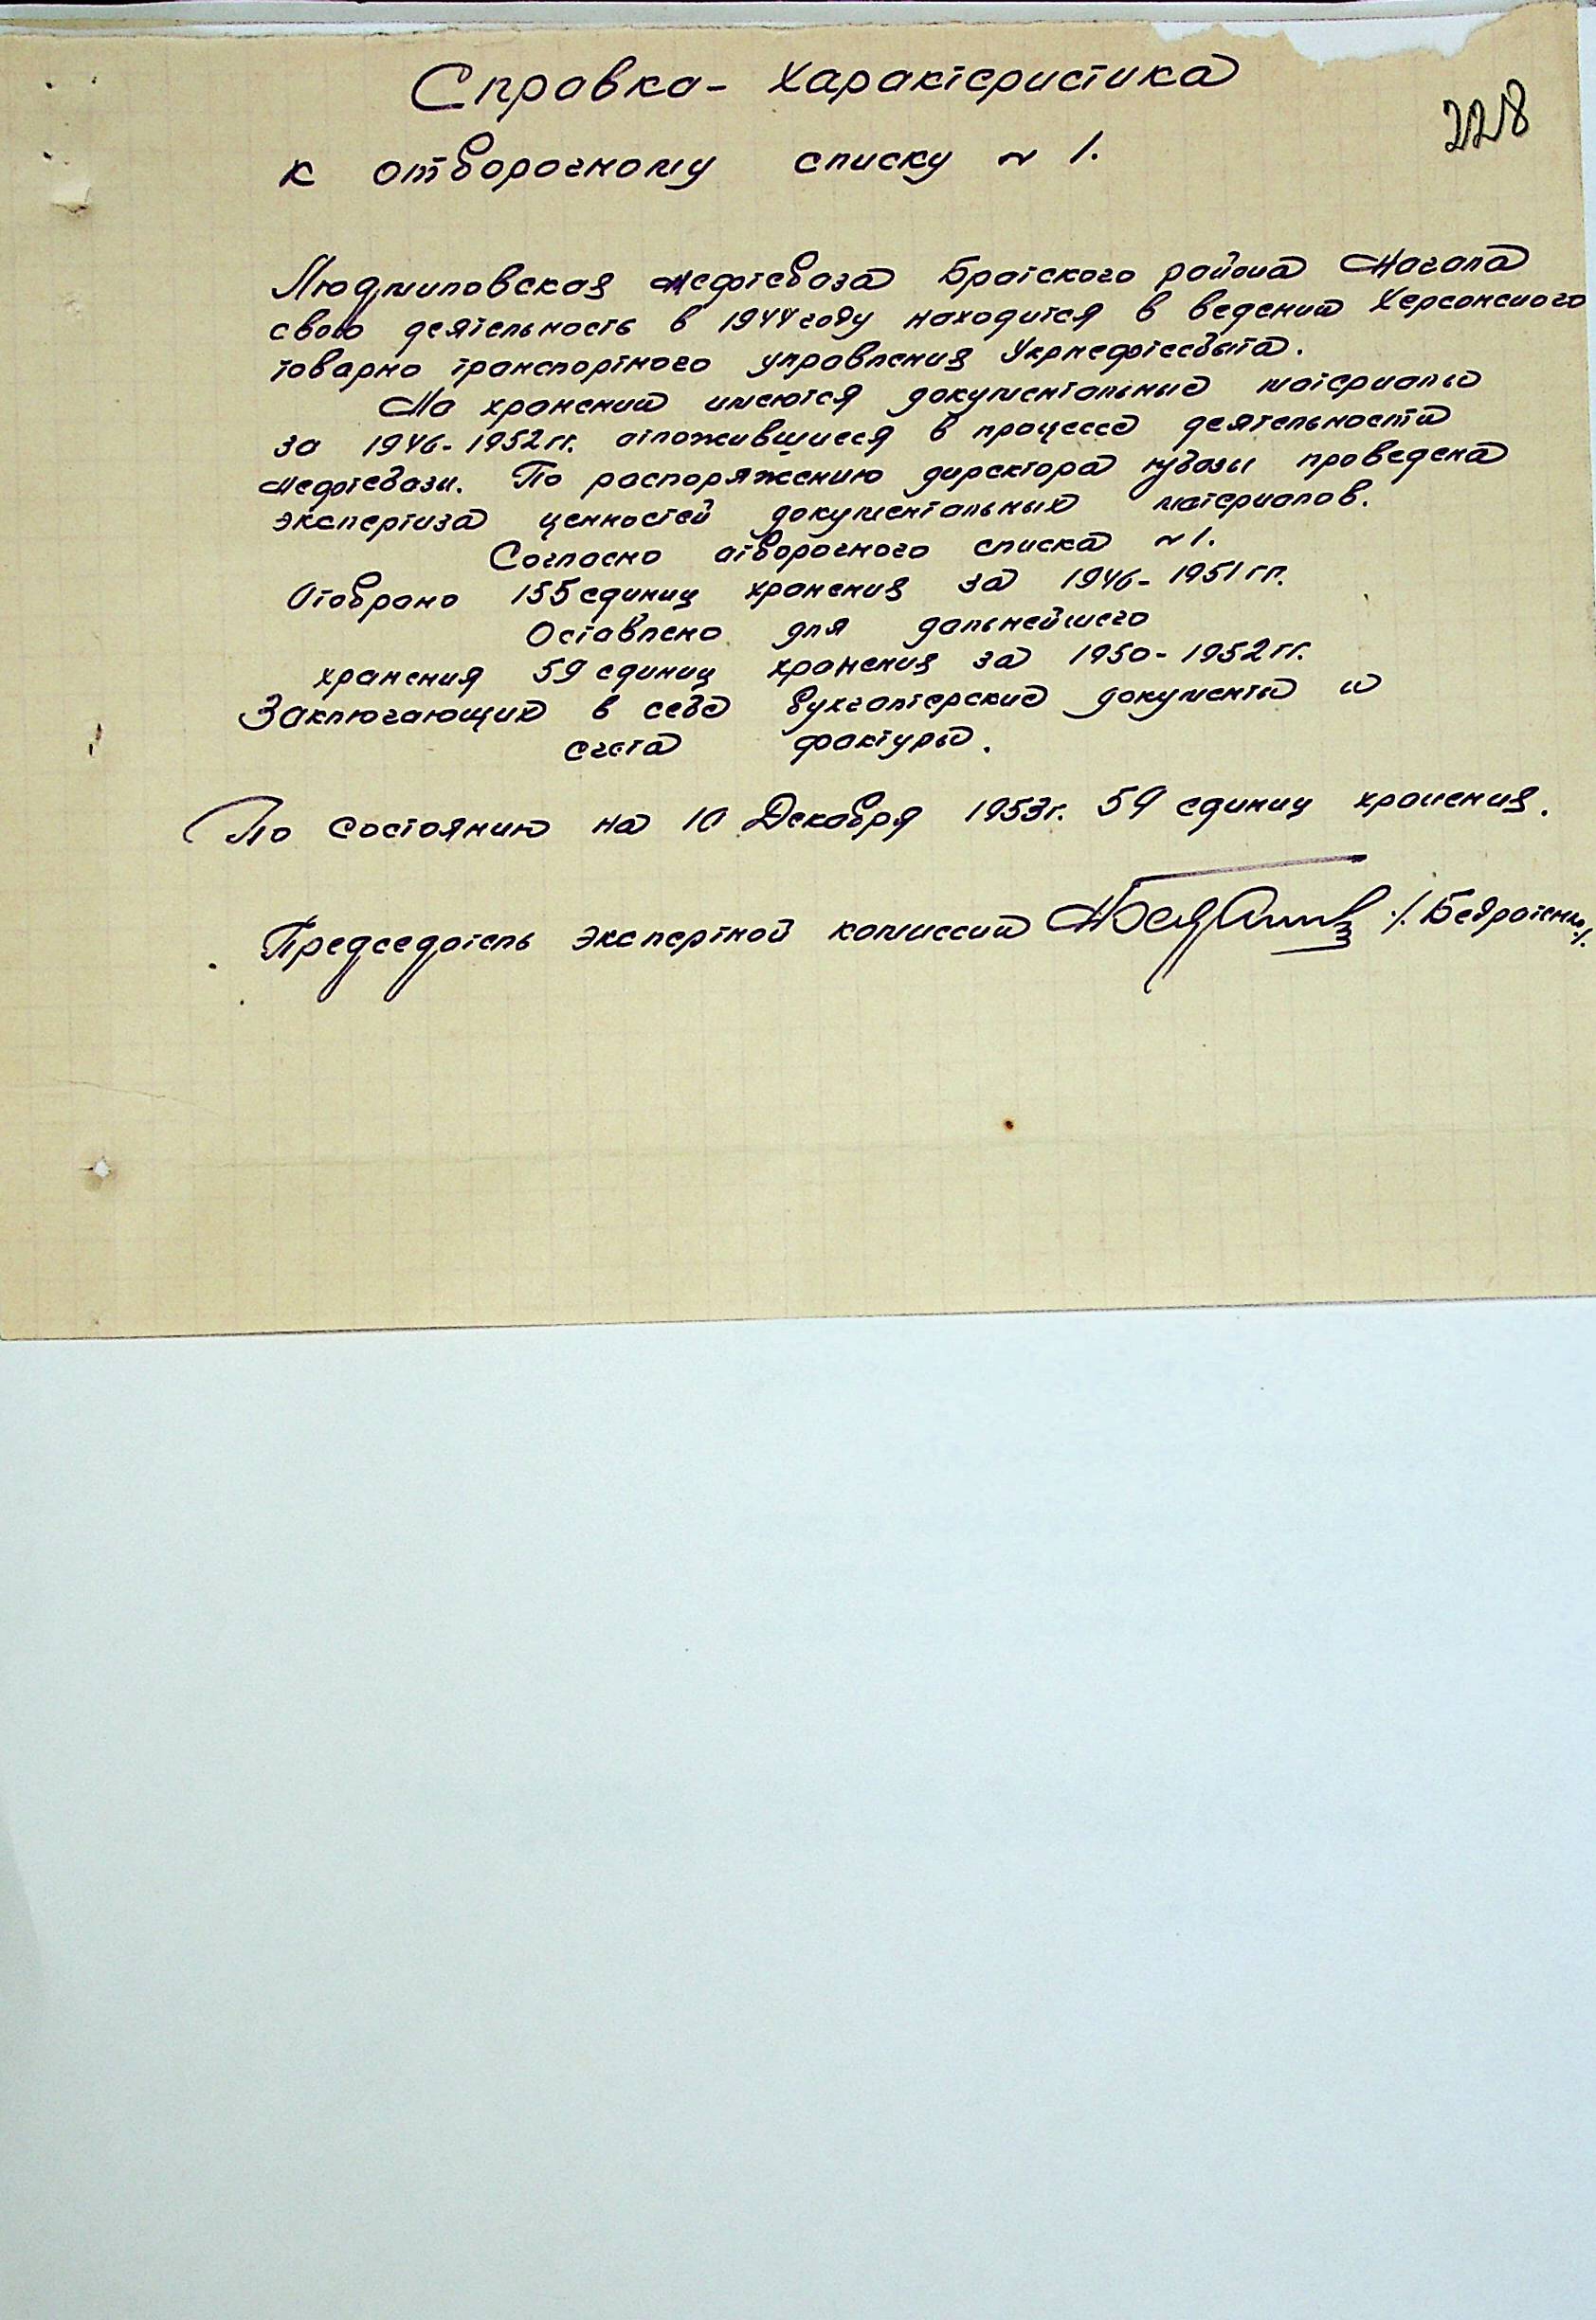 Справка- характеристика
228
к отборочному списку № 1.
Людмиловская нефтебаза Братского района Начала
свою деятельность в 1944 году находится в ведении Херсонского
товарно транспортного управления Укрнефтесбыта.
На хранении имеются документальные материалы
за 1946-1952 гг. отложившиеся в процессе деятельности
нефтебазы. По распоряжению директора н/базы проведена
экспертиза ценностей документальных материалов.
Согласно отборочного списка № 1.
Отобрано 155 единиц хранения за 1946-1951 гг.
Оставлено для дальнейшего
хранения 59 единиц хранения за 1950-1952 гг.
Заключающих в себе бухгалтерские документы и
счета фактуры.
По состоянию на 10 Декабря 1953 г. 59 единиц хранения.
Председатель экспертной комиссии